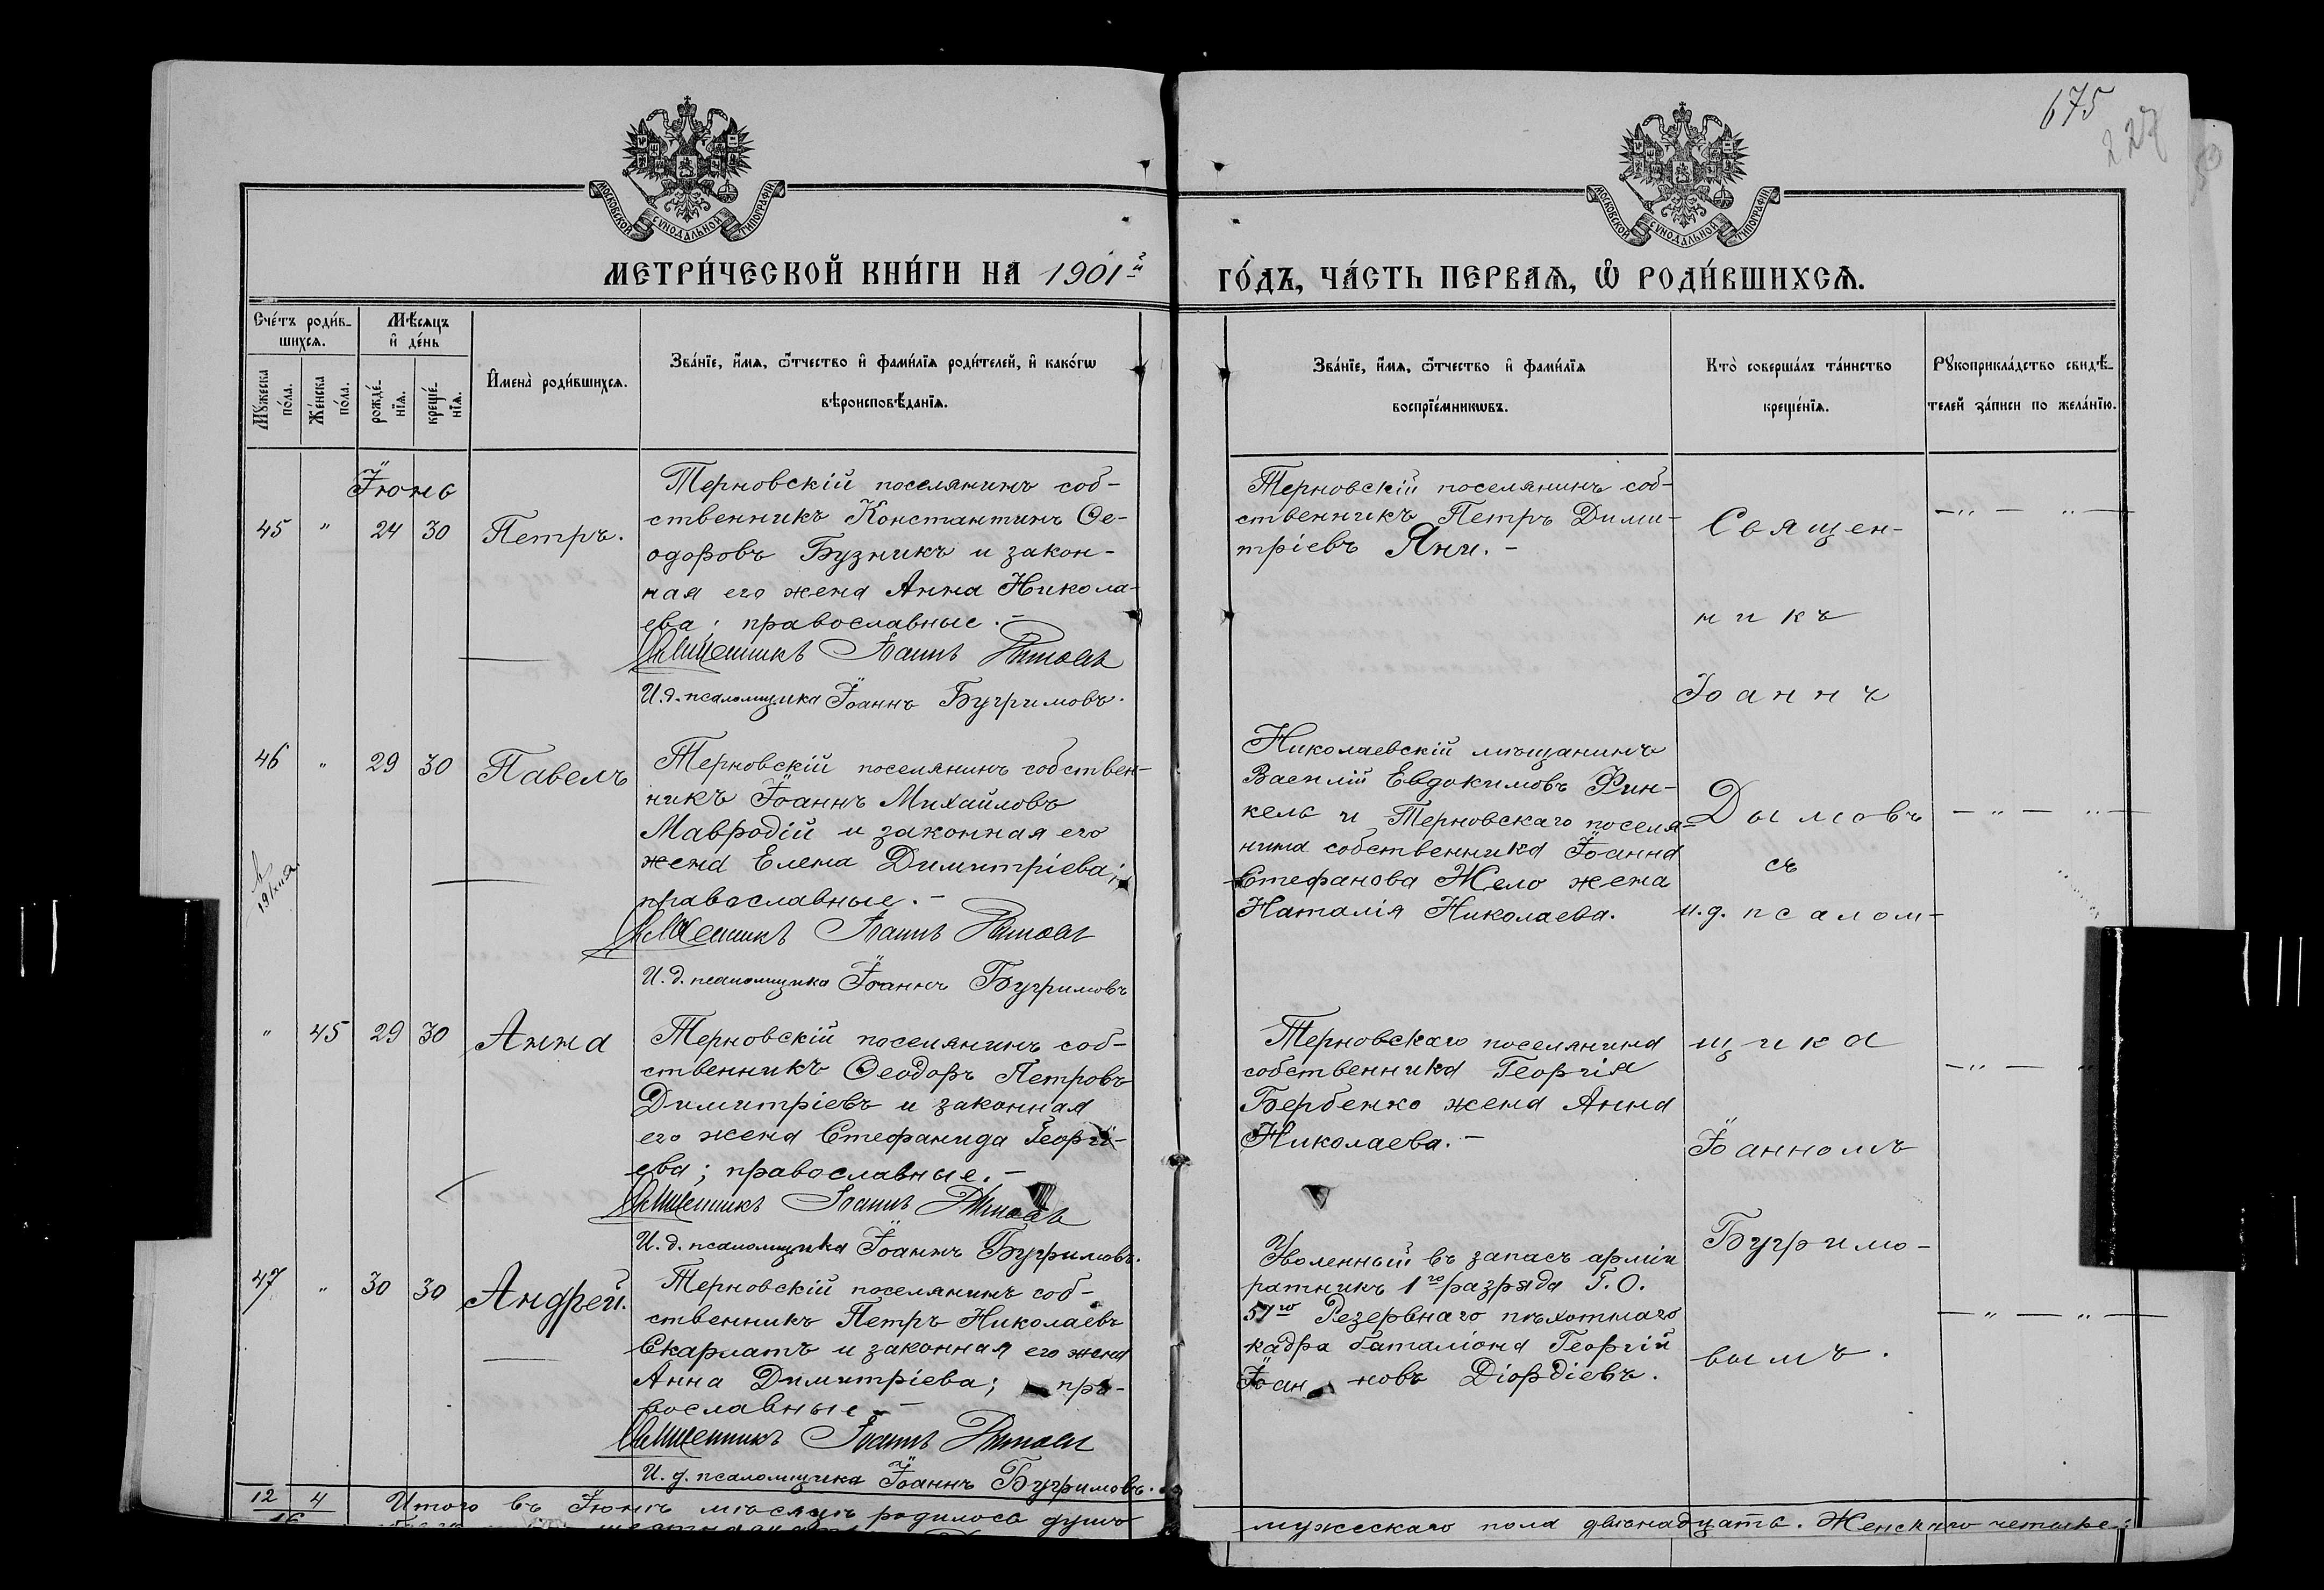 675
227
МОСКОВСКОЙ СУНОДАЛЬНОЙ ТИПОГРАФІИ
МОСКОВСКОЙ СУНОДАЛЬНОЙ ТИПОГРАФІИ
МЕТРИ́ЧЕСКОЙ КНИ́ГИ НА 1901й
ГО́ДЪ, ЧА́СТЬ ПЕРВАѦ, Ѡ РОДИ́ВШИХСѦ.
Сче́тъ роди́в-
шихсѧ.
Мꙋ́жеска
по́ла.
Же́нска
по́ла.
Мѣ́сяцъ
и де́нь
рожде́-
нїѧ.
креще́-
нїѧ.
Имена̀ роди́вшихсѧ.
Зва́нїе, и́мѧ, ѻ́тчество и фами́лїѧ роди́телей, и како́гѡ
вѣроисповѣ́данїѧ.
Зва́нїе, и́мѧ, ѻ́тчество и фами́лїѧ
воспрїе́мникѡвъ.
Кто̀ соверша́лъ та́инство
креще́нїѧ.
Рꙋкоприкла́дство свидѣ́-
телей за́писи по жела́нїю.
Іюнь
45 " 24 30 Петръ.
Терновскій поселянинъ соб-
ственникъ Константинъ Ѳе-
одоровъ Бузникъ и закон-
ная его жена Анна Никола-
ева; православные.-
Священникъ Іоаннъ Дымовъ
И.д. псаломщика Іоаннъ Бугримовъ.
Терновскій поселянинъ соб-
ственникъ Петръ Дими-
тріевъ Яни.-
Священ-
никъ
Іоаннъ
46 " 29 30 Павелъ
Терновскій поселянинъ собствен-
никъ Іоаннъ Михайловъ
Мавродій и законная его
жена Елена Димитріева;
православные.-
Священникъ Іоаннъ Дымовъ
И.д. псаломщика Іоаннъ Бугримовъ
Николаевскій мѣщанинъ
Василій Евдокимовъ Фин-
кель и Терновскаго поселя-
нина собственника Іоанна
Стефанова Жело жена
Наталія Николаева.
Дымовъ
съ
и.д. псалом-
" 45 29 30 Анна
Терновскій поселянинъ соб-
ственникъ Ѳеодоръ Петровъ
Димитріевъ и законная
его жена Стефанида Георгі-
ева; православные.-
Священникъ Іоаннъ Дымовъ
И.д. псаломщика Іоаннъ Бугримовъ.
Терновскаго поселянина
собственника Георгія
Бербенко жена Анна
Николаева.-
щика
Іоанномъ
Бугримо-
47 " 30 30 Андрей.
Терновскій поселянинъ соб-
ственникъ Петръ Николаевъ
Скарлатъ и законная его жена
Анна Димитріева; пра-
вославные.-
Священникъ Іоаннъ Дымовъ
И.д. псаломщика Іоаннъ Бугримовъ.
Уволенный въ запасъ арміи
ратникъ 1го разряда Г.О.
51го Резервнаго пѣхотнаго
кадра баталіона Георгій
Іоанновъ Діордіевъ.
вымъ.
12 4
16
Итого въ Іюнѣ мѣсяцѣ родилось душъ
мужескаго пола двѣнадцать. Женскаго четыре;